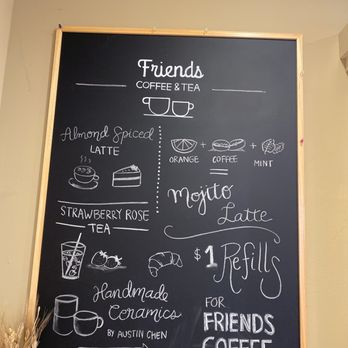 Friends
COFFEE & TEA
Almond Spiced
LATTE
+ +
ORANGE COFFEE MINT
=
Mojito
Latte
STRAWBERRY ROSE
TEA
$1 Refills
Handmade
Ceramics
BY AUSTIN CHEN
FOR
FRIENDS
COFFEE